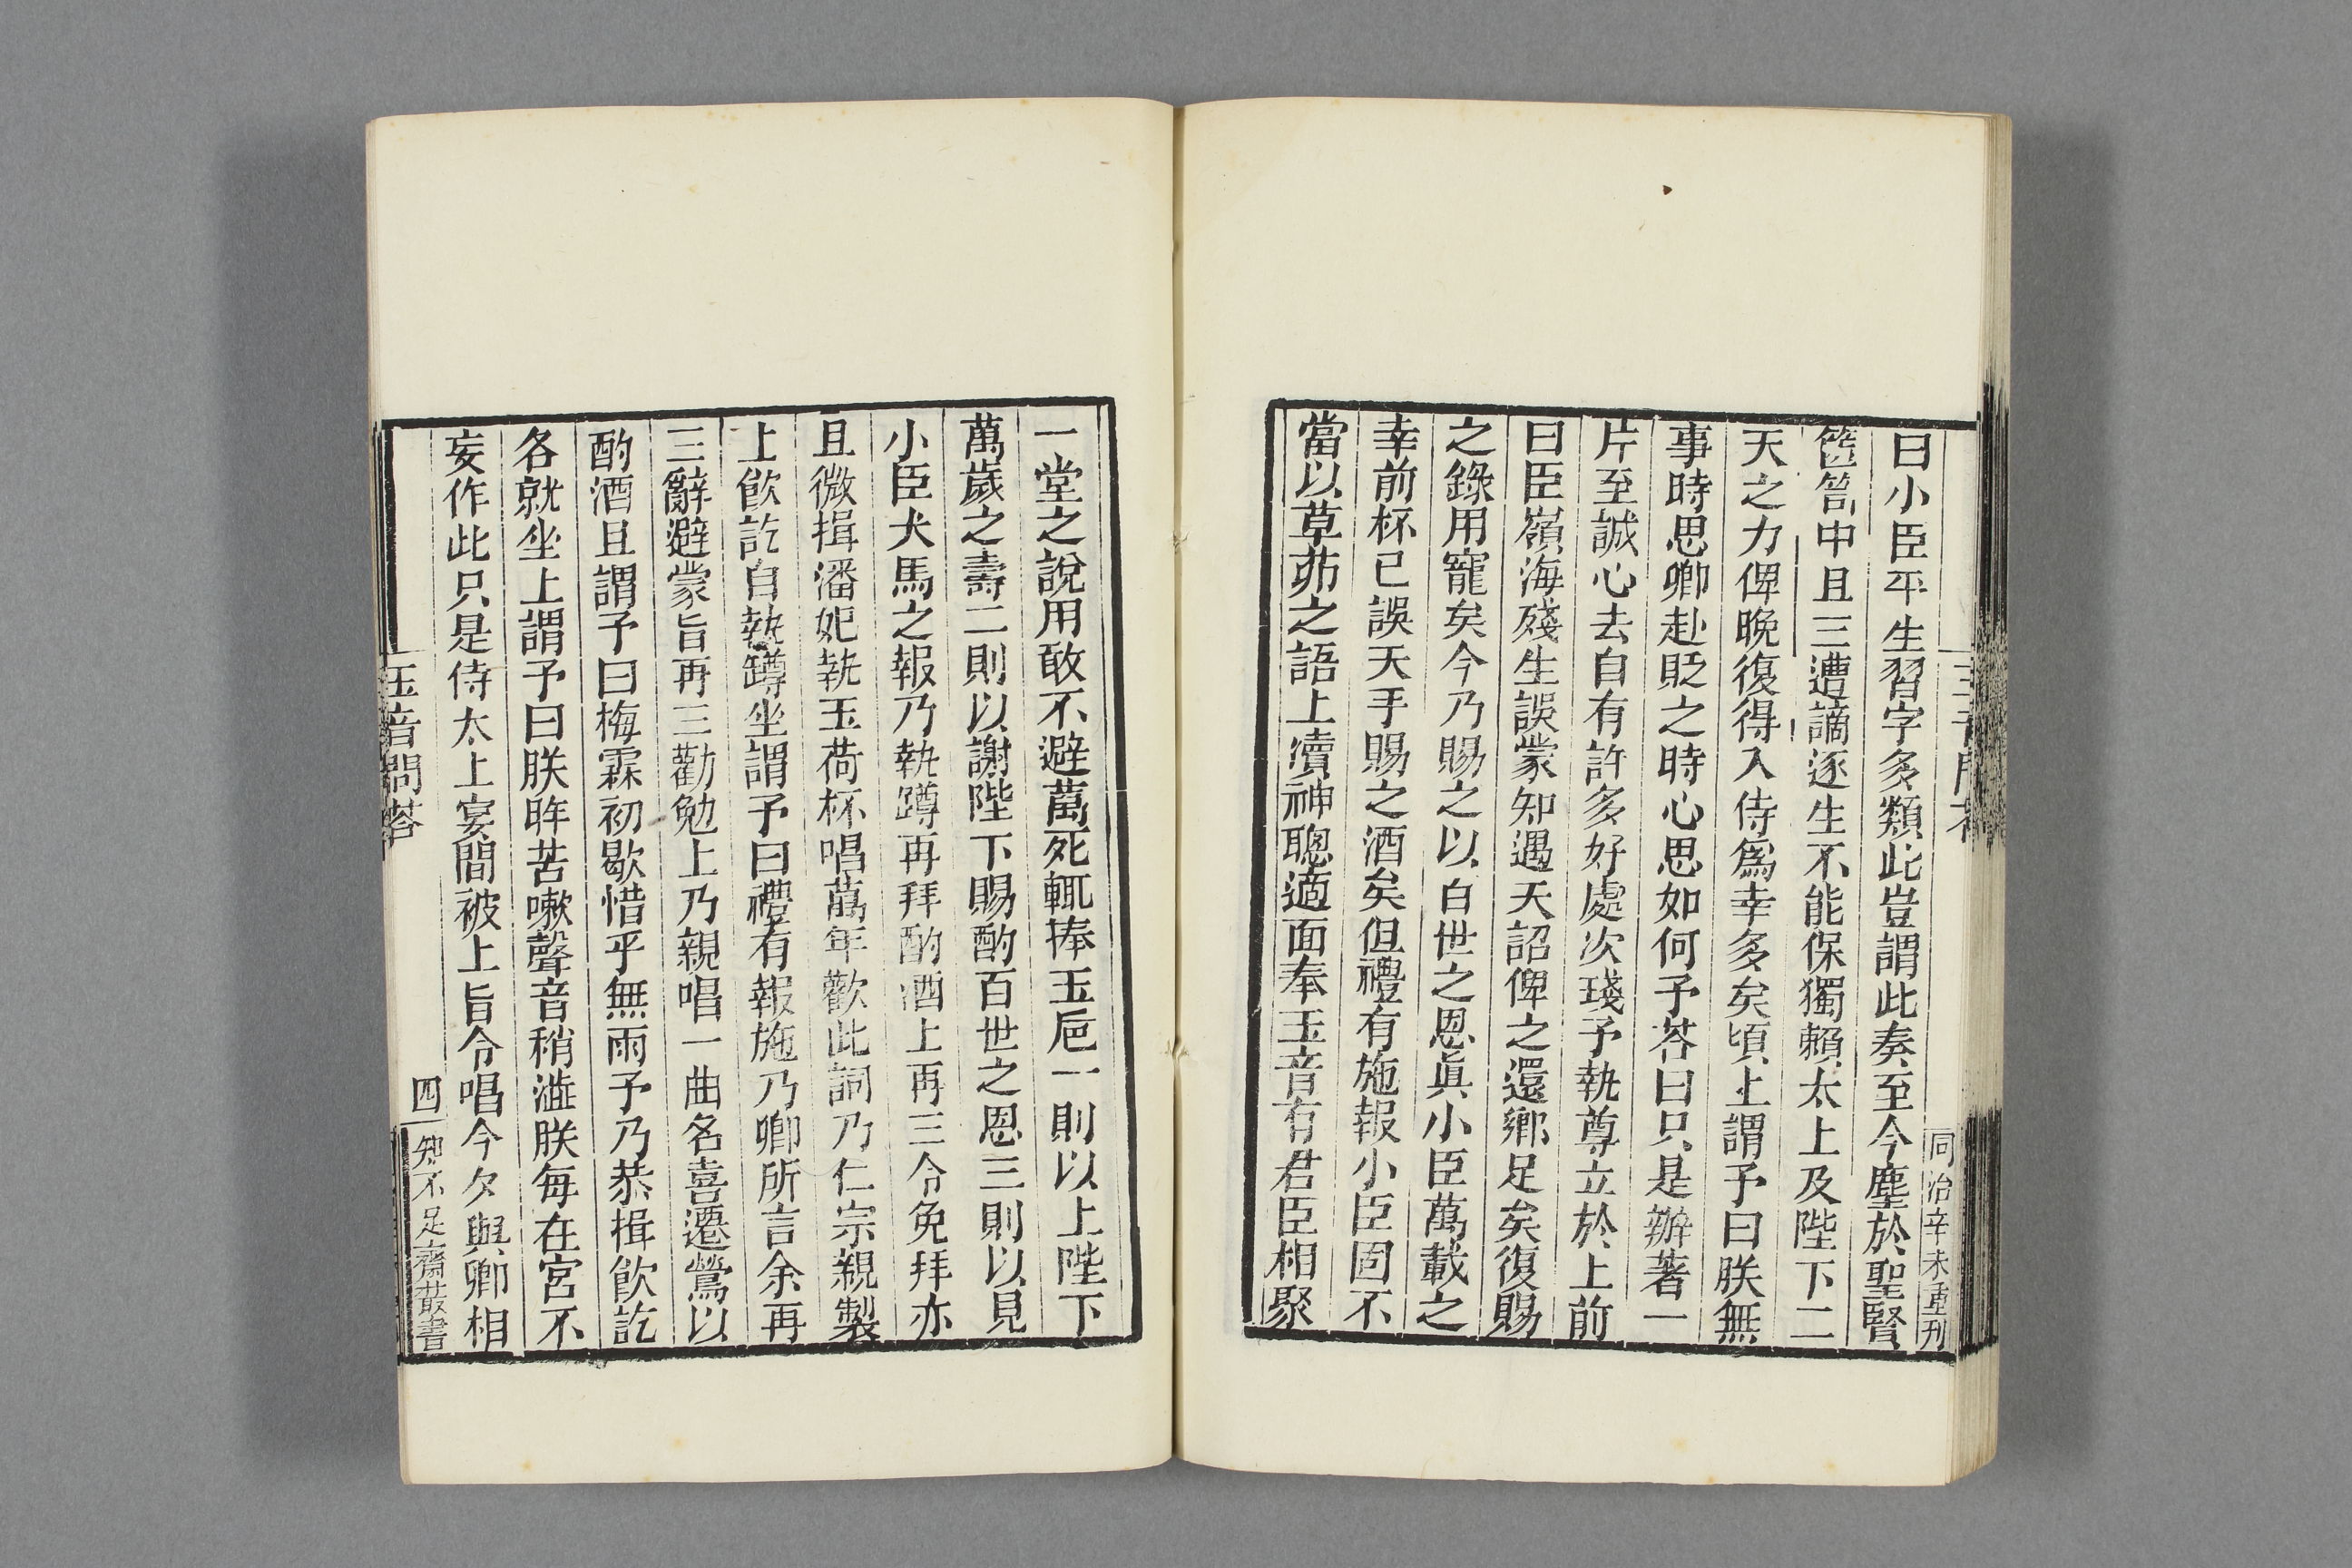 同治辛未重刊
曰小臣平生習字多類此豈謂此奏至今塵於聖賢
篋笥中且三遭謫逐生不能保獨賴太上及陛下二
天之力俾晚復得入侍爲幸多矣頃上謂予曰朕無
事時思卿赴貶之時心思如何予荅曰只是辦著一
片至誠心去自有許多好處次琖予執尊立於上前
曰臣嶺海殘生誤蒙知遇天詔俾之還鄉足矣復賜
之錄用寵矣今乃賜之以白世之恩眞小臣萬載之
幸前杯已誤天手賜之酒矣但禮有施報小臣固不
當以草茆之語上瀆神聰適面奉玉音有君臣相聚
一堂之說用敢不避萬死輒捧玉巵一則以上陛下
萬歲之壽二則以謝陛下賜酌百世之恩三則以見
小臣犬馬之報乃執蹲再拜酌酒上再三令免拜亦
且微揖潘妃執玉荷杯唱萬年歡此詞乃仁宗親製
上飮訖自執蹲坐謂予曰禮有報施乃卿所言余再
三辭避蒙旨再三勸勉上乃親唱一曲名喜遷鶯以
酌酒且謂予曰梅霖初歇惜乎無雨予乃恭揖飮訖
各就坐上謂予曰朕昨苦嗽聲音稍澁朕每在宮不
妄作此只是侍太上宴間被上旨令唱今夕與卿相
玉音問荅
四
知不足齋叢書